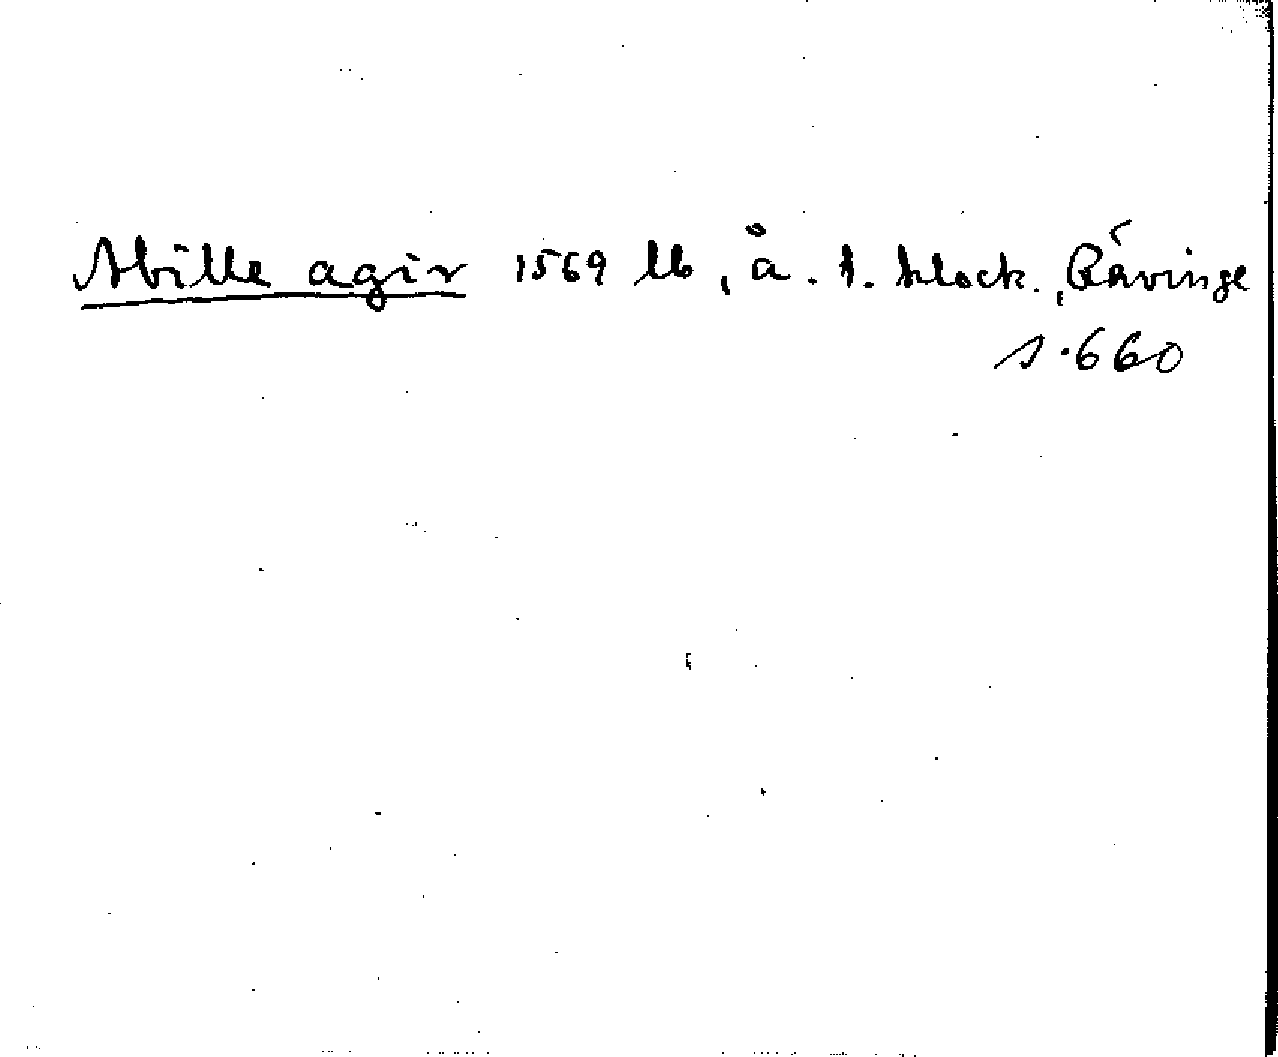 Abille agir 1569 lb, å. t. klock., Rävinge
s. 660